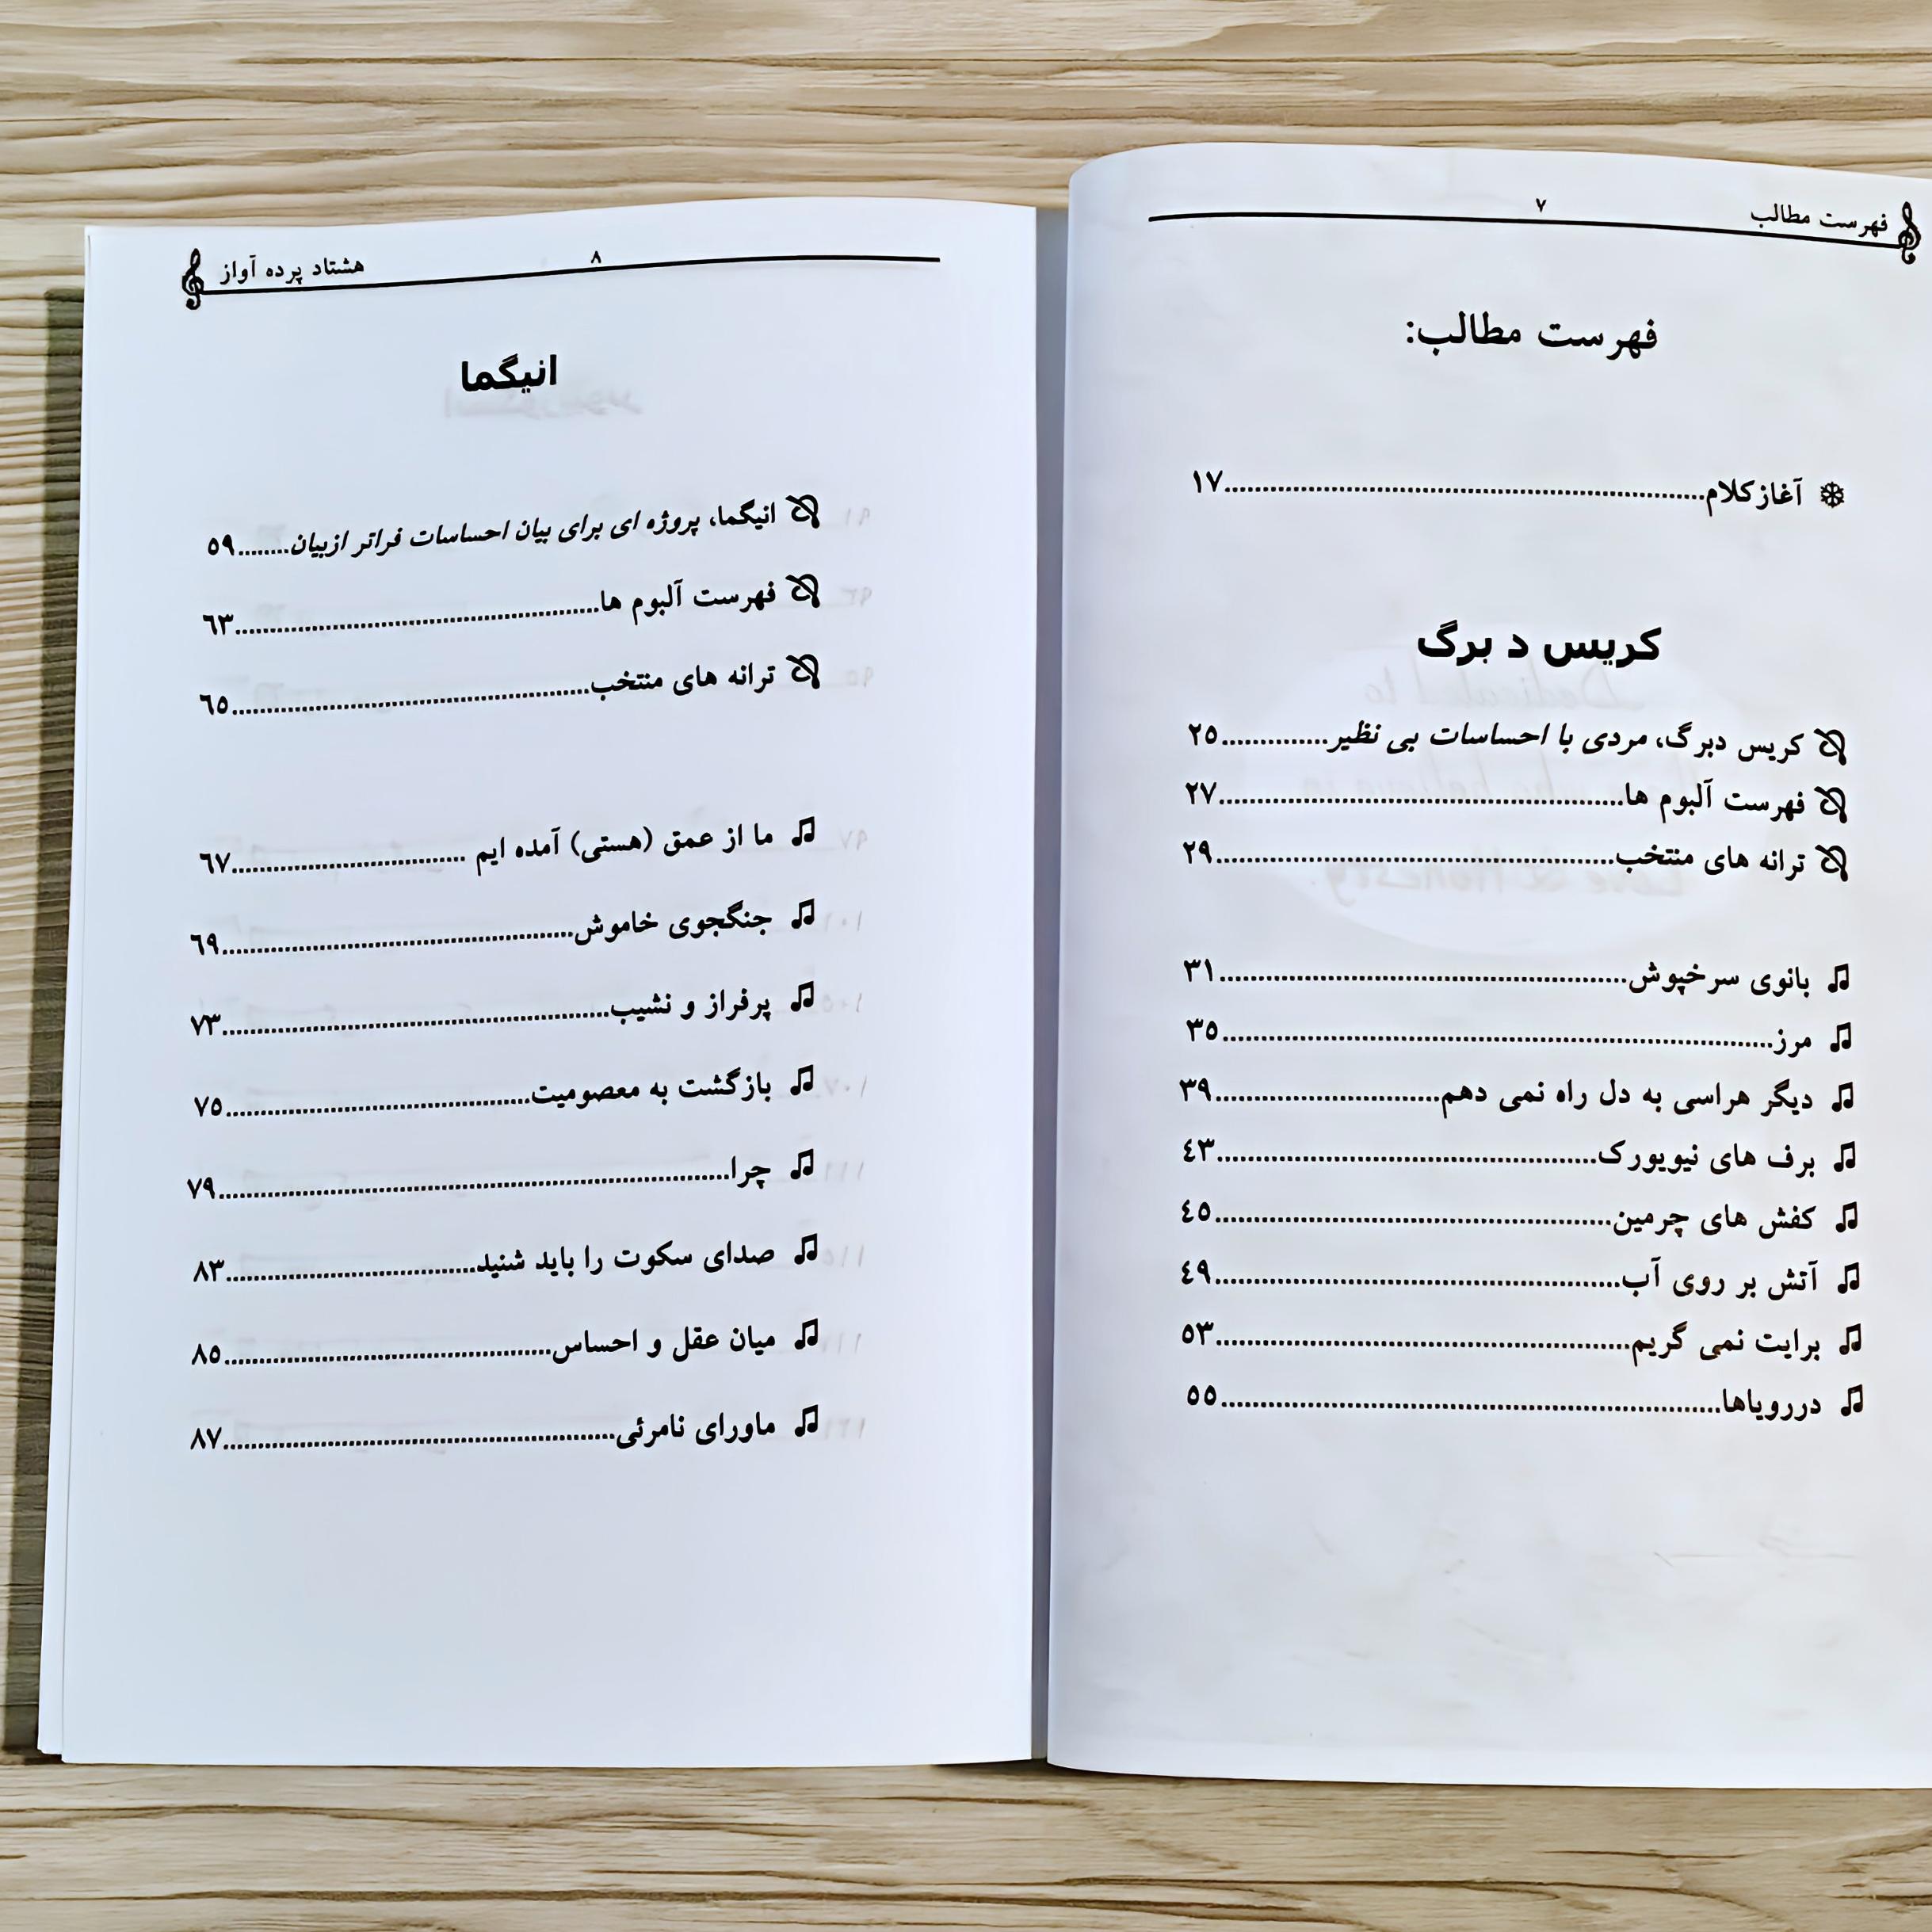 فهرست مطالب ۷
فهرست مطالب:
آغازکلام........۱۷
کریس د برگ
کریس دبرگ، مردی با احساسات بی نظیر........۲۵
فهرست آلبوم ها........۲۷
ترانه های منتخب........۲۹
بانوی سرخپوش........۳۱
مرز........۳۵
دیگر هراسی به دل راه نمی دهم........۳۹
برف های نیویورک........٤۳
کفش های چرمین........٤٥
آتش بر روی آب........٤۹
برایت نمی گریم........٥۳
دررویاها........٥٥
۸ هشتاد پرده آواز
انیگما
انیگما، پروژه ای برای بیان احساسات فراتر ازبیان........٥۹
فهرست آلبوم ها........٦۳
ترانه های منتخب........٦٥
ما از عمق (هستی) آمده ایم ........٦۷
جنگجوی خاموش........٦۹
پرفراز و نشیب........۷۳
بازگشت به معصومیت........۷٥
چرا........۷۹
صدای سکوت را باید شنید........۸۳
میان عقل و احساس........۸٥
ماورای نامرئی........۸۷